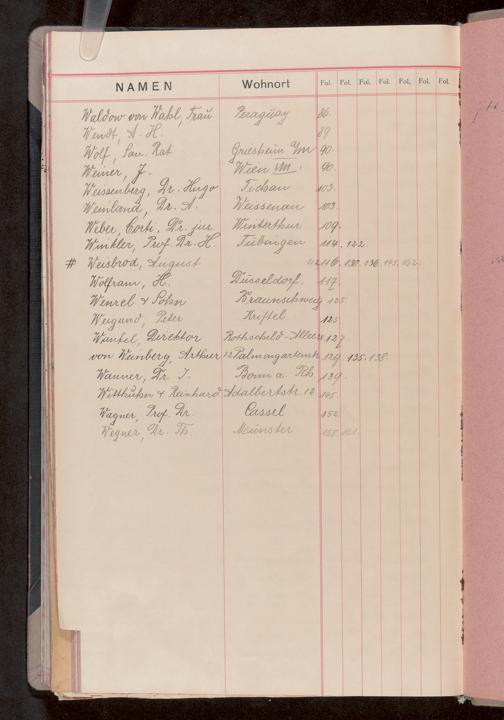 NAMEN Wohnort Fol. Fol. Fol. Fol. Fol. Fol. Fol.
Waldow von Wahl, Frau Paraguay 86.
Wendt, A. H. 89
Wolf, San. Rat Griesheim 90.
Weiner, J. Wien 90.
Weissenberg, Dr. Hugo 103.
Weinland, Dr. A. Weissenau 103.
Weber, Corti, Dr. jur. Winterthur 109.
Winkler, Prof. Dr. H. Tübingen 114. 122.
# Weisbrod, August 112 116. 130. 136. 145. 152.
Wolfram, H. Düsseldorf. 117.
Wenzel & Sohn Braunschweig 125.
Weigand, Peter Kriftel 125
Wankel, Direktor Rothschild-Allee 127.
von Weinberg, Arthur Palmengartenstr. 129. 135. 138.
Wanner, Dr. I. Bonn a. Rh. 139.
Witthuhn & Reinhard Adalbertstr. 12 145.
Wagner, Prof. Dr. Cassel 152
Wegner, Dr. Th. Münster 155 161.